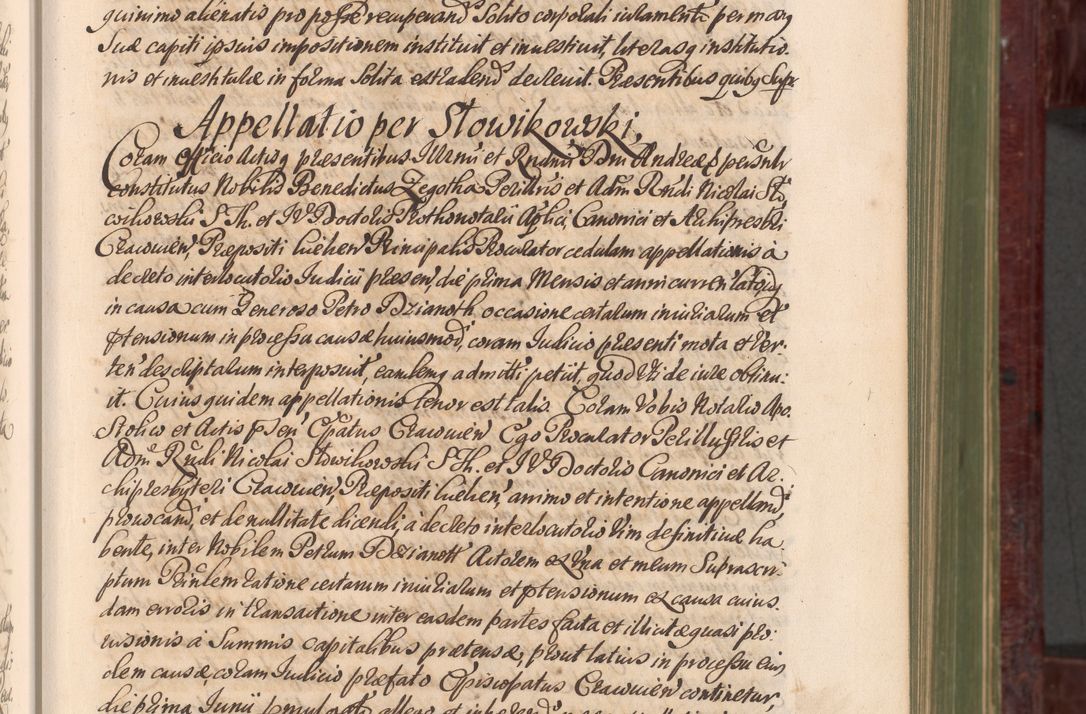 quinimo alienatio pro posse recuperand' Solito corporali iuramento per man9
Suæ capiti ipsius impositionem instituit et investivit, literasq institutio-
nis et investituræ in forma Solita extradend' decrevit. Præsentibus quibq Supr
Appellatio per Słowikowski.
Coram officio Actisq præsentibus Illrmi et Rndmi Dni Andreæ E personlr
constitutus Nobilis Benedictus Zegotha Perillris et Adm Rndi Nicolai Sło-
wikowski S Th. et IV Doctoris Prothonotarii Aplici, Canonici et Archipresbri
Cracovien', Præpositi Kielcen' Principalis Procurator cedulam appellationis à
decreto interlocutorio Iudicii præsen', die prima Mensis et anni curren' latoq
in causa cum Generoso Petro Dzianoth occasione certarum iniuriarum et
ptensionum in processu causæ huiusmod', coram Iudicio præsenti mota et ver-
ten' descriptarum interposuit, eamdemq admitti petiit, quod uti de iure obtinu-
it. Cuius quidem appellationis tenor est talis. Coram Vobis Notario Apo-
stolico et Actis psen' Epatus Cracovien' Ego Procurator Perillustris et
Adm Rndi Nicolai Słowikowski S Th. et IV Doctoris Canonici et Ar-
chipresbyteri Cracovien', Præpositi Kielcen', animo et intentione appelland',
provocand', et de nullitate dicendi, à decreto interlocutorio vim definitivæ ha-
bente, inter Nobilem Petrum Dzianott Actorem ex Una et meum Suprascri-
ptum Prinlem ratione certarum iniuriarum et ptensionum ex causa cuius-
dam erroris in transactione inter easdem partes facta et illicitæ quasi pro-
visionis à Summis capitalibus prætensæ, prout latius in processu eius
dem causæ, coram Iudicio præfato Episcopatus Cracovien' continetur,
die prima Iunii